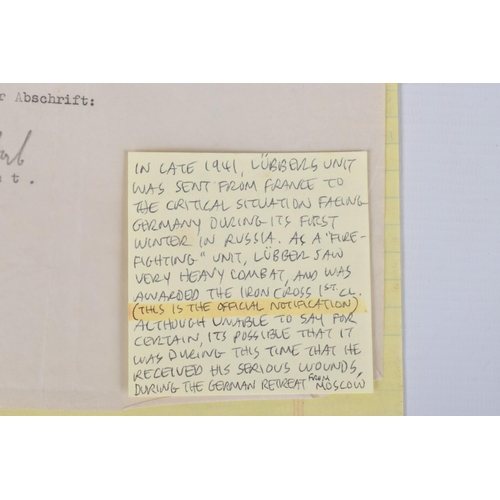 r Abschrift:
n t .
IN LATE 1941, LÜBBERS UNIT
WAS SENT FROM FRANCE TO
THE CRITICAL SITUATION FACING
GERMANY DURING ITS FIRST
WINTER IN RUSSIA. AS A "FIRE-
FIGHTING" UNIT, LÜBBER SAW
VERY HEAVY COMBAT, AND WAS
AWARDED THE IRON CROSS 1ST CL.
(THIS IS THE OFFICIAL NOTIFICATION)
ALTHOUGH UNABLE TO SAY FOR
CERTAIN, ITS POSSIBLE THAT IT
WAS DURING THIS TIME THAT HE
RECEIVED HIS SERIOUS WOUNDS,
DURING THE GERMAN RETREAT FROM MOSCOW